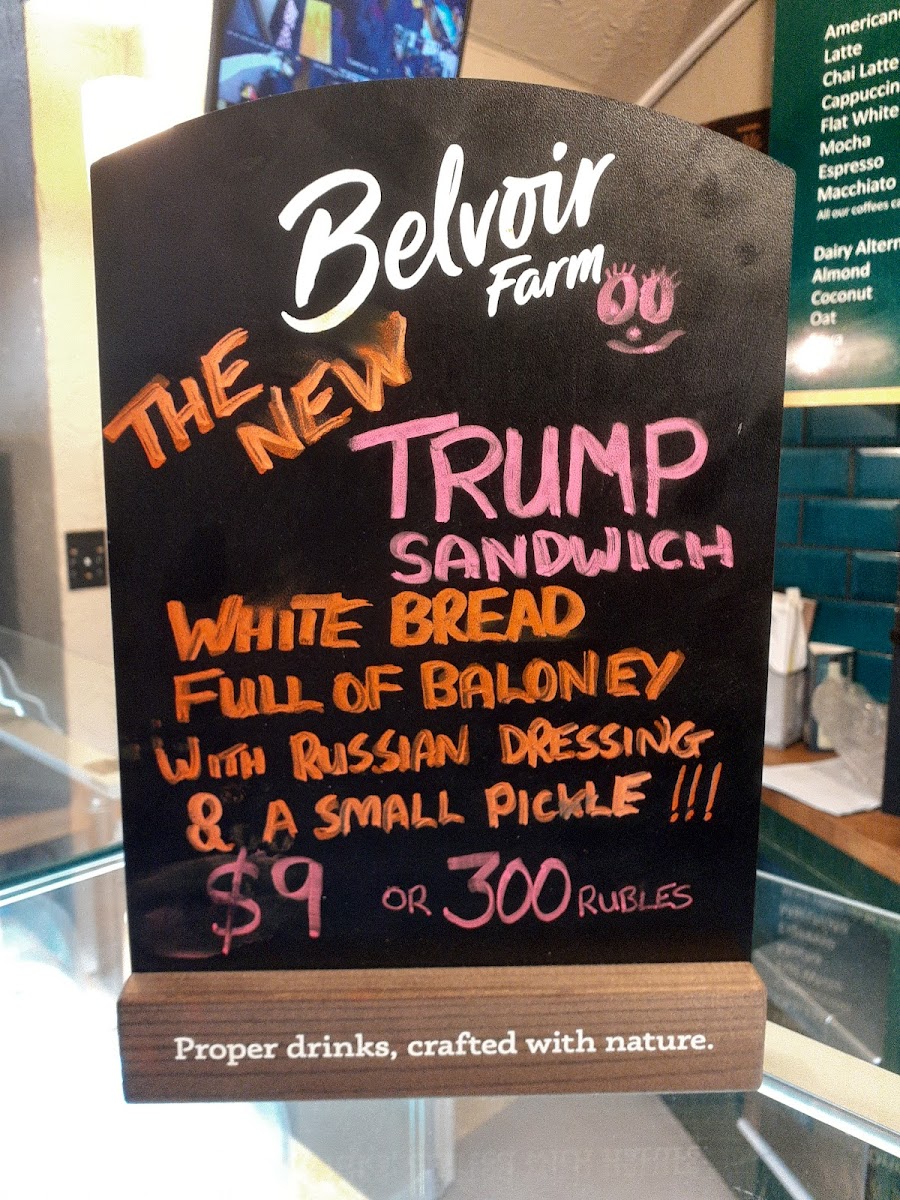 Belvoir
Farm
THE
NEW
TRUMP
SANDWICH
WHITE BREAD
FULL OF BALONEY
WITH RUSSIAN DRESSING
& A SMALL PICKLE !!!
$9 OR 300 RUBLES
Proper drinks, crafted with nature.
Americano
Latte
Chai Latte
Cappuccin
Flat White
Mocha
Espresso
Macchiato
All our coffees ca
Dairy Altern
Almond
Coconut
Oat